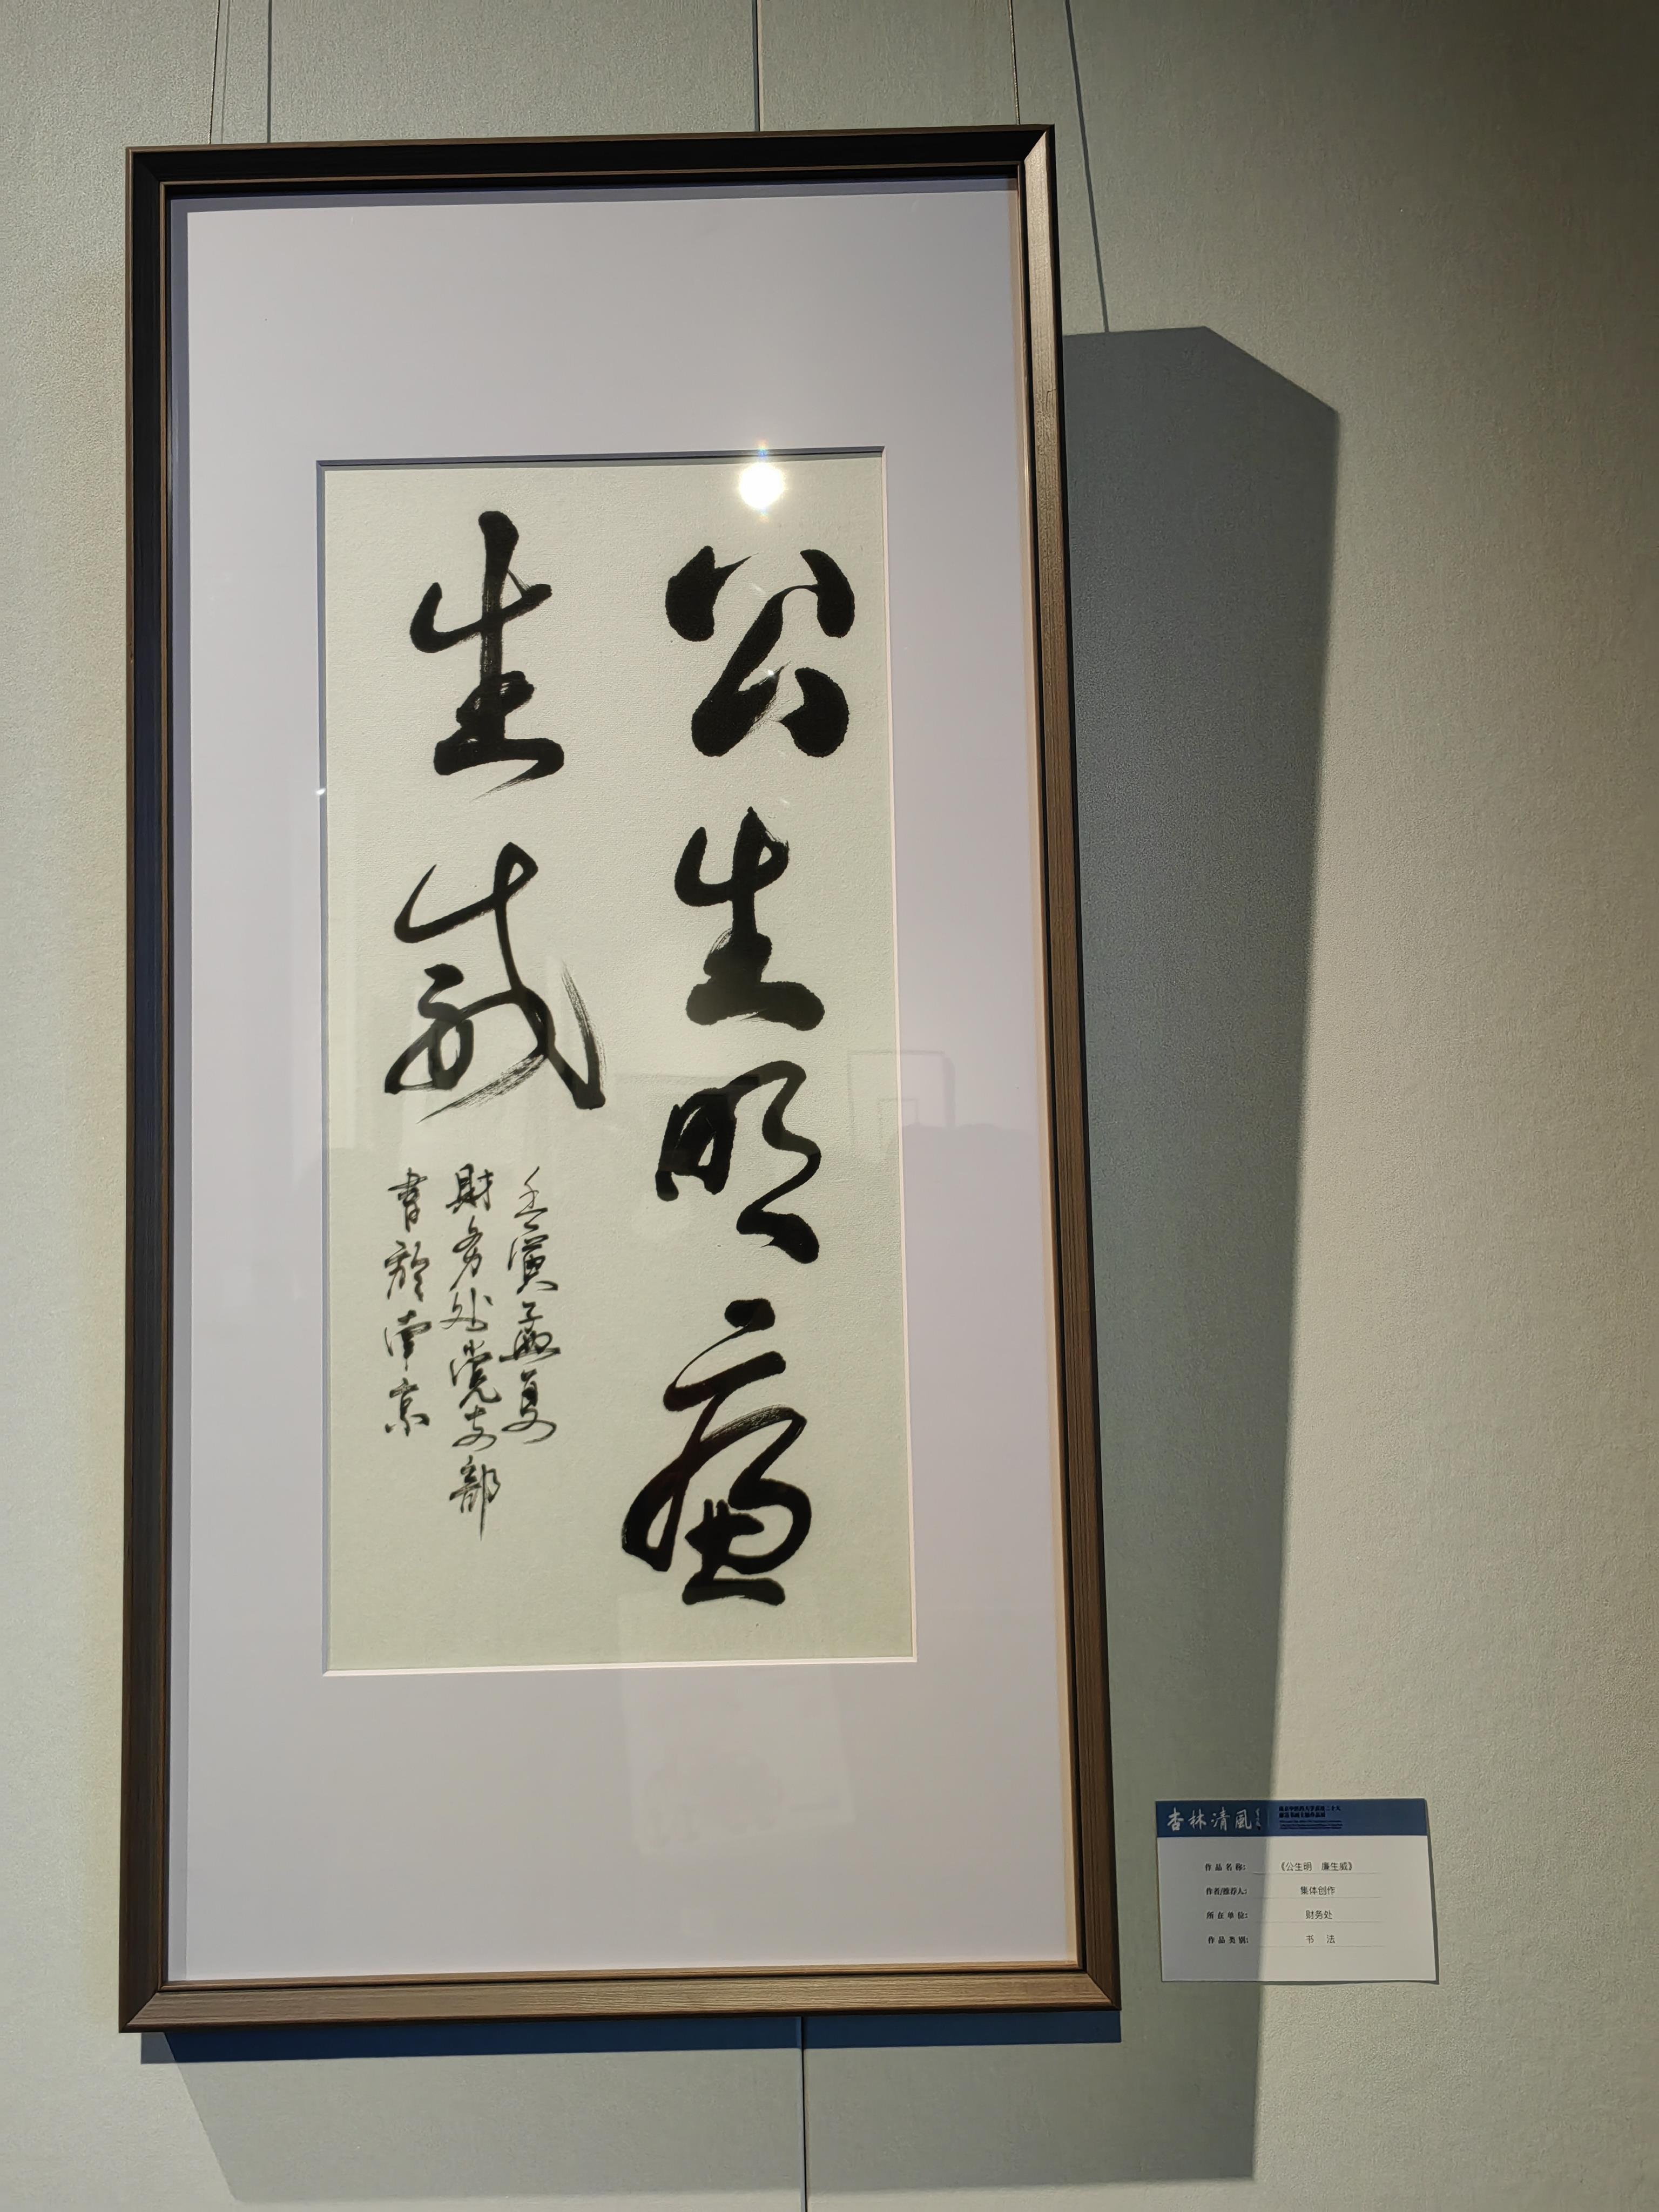 公生明廉
生威
壬寅孟夏
財务处党支部
書於南京
杏林清風
作品名称: 《公生明 廉生威》
作者/推荐人: 集体创作
所在单位: 财务处
作品类别: 书 法